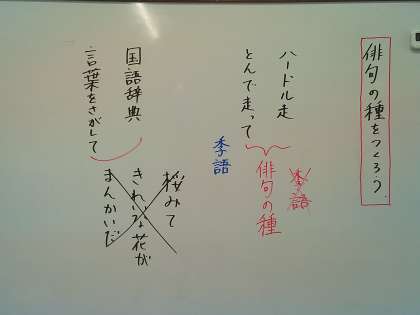 俳句の種をつくろう。
ハードル走
とんで走って
季語
俳句の種
季語
国語辞典
言葉をさがして
桜みて
きれいな花が
まんかいだ